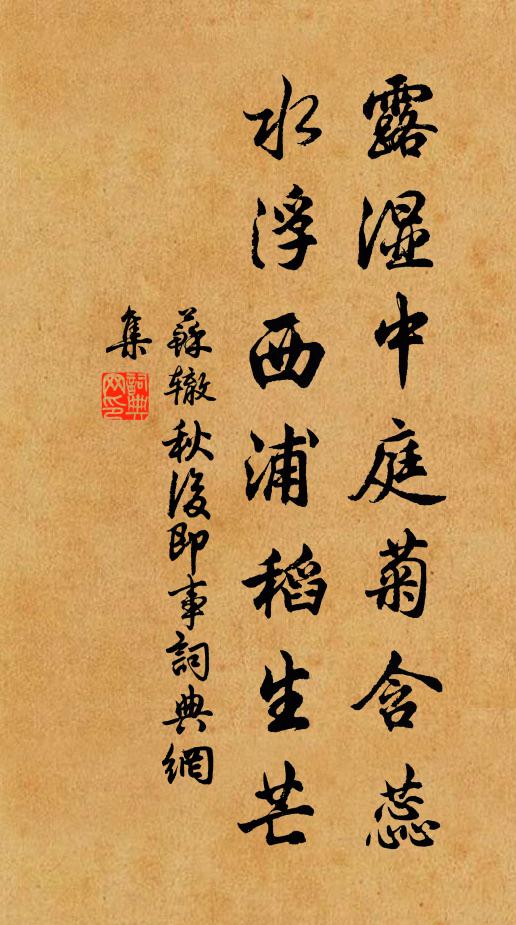 露湿中庭菊含蕊
水浮西浦稻生芒
蘇辙秋後即事詞典網
集
詞典網印